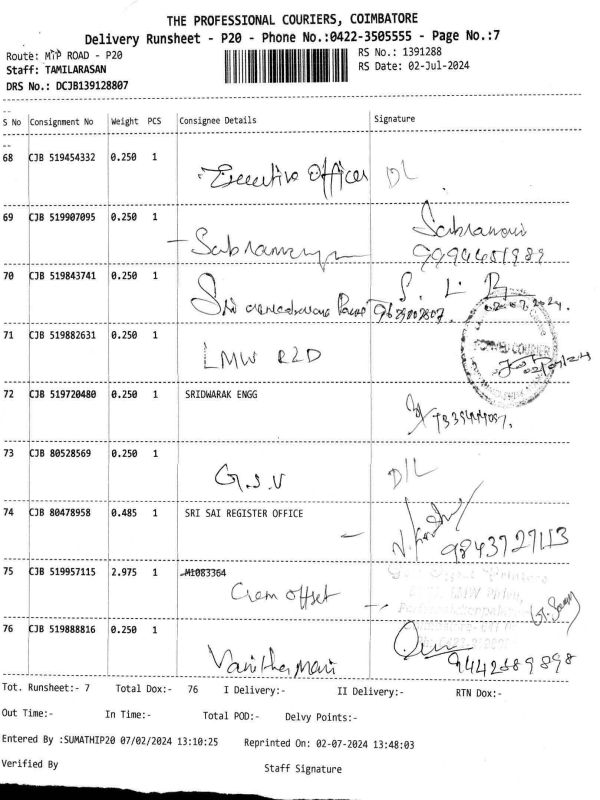 THE PROFESSIONAL COURIERS, COIMBATORE
Delivery Runsheet - P20 - Phone No.:0422-3505555 - Page No.:7
Route: MTP ROAD - P20
RS No.: 1391288
Staff: TAMILARASAN
RS Date: 02-Jul-2024
DRS No.: DCJB139128807
S No Consignment No Weight PCS Consignee Details Signature
68 CJB 519454332 0.250 1
Executive Officer DL
69 CJB 519907095 0.250 1
70 CJB 519843741 0.250 1
S. L. R
Sri
71 CJB 519882631 0.250 1
LMW R2D
72 CJB 519720480 0.250 1 SRIDWARAK ENGG
73 CJB 80528569 0.250 1
G.S.V D/L
74 CJB 80478958 0.485 1 SRI SAI REGISTER OFFICE
9843727113
75 CJB 519957115 2.975 1 M1083364
Crem offset
76 CJB 519888816 0.250 1
Vanitha mani 9442889898
Tot. Runsheet:- 7 Total Dox:- 76 I Delivery:- II Delivery:- RTN Dox:-
Out Time:- In Time:- Total POD:- Delvy Points:-
Entered By :SUMATHIP20 07/02/2024 13:10:25 Reprinted On: 02-07-2024 13:48:03
Verified By Staff Signature